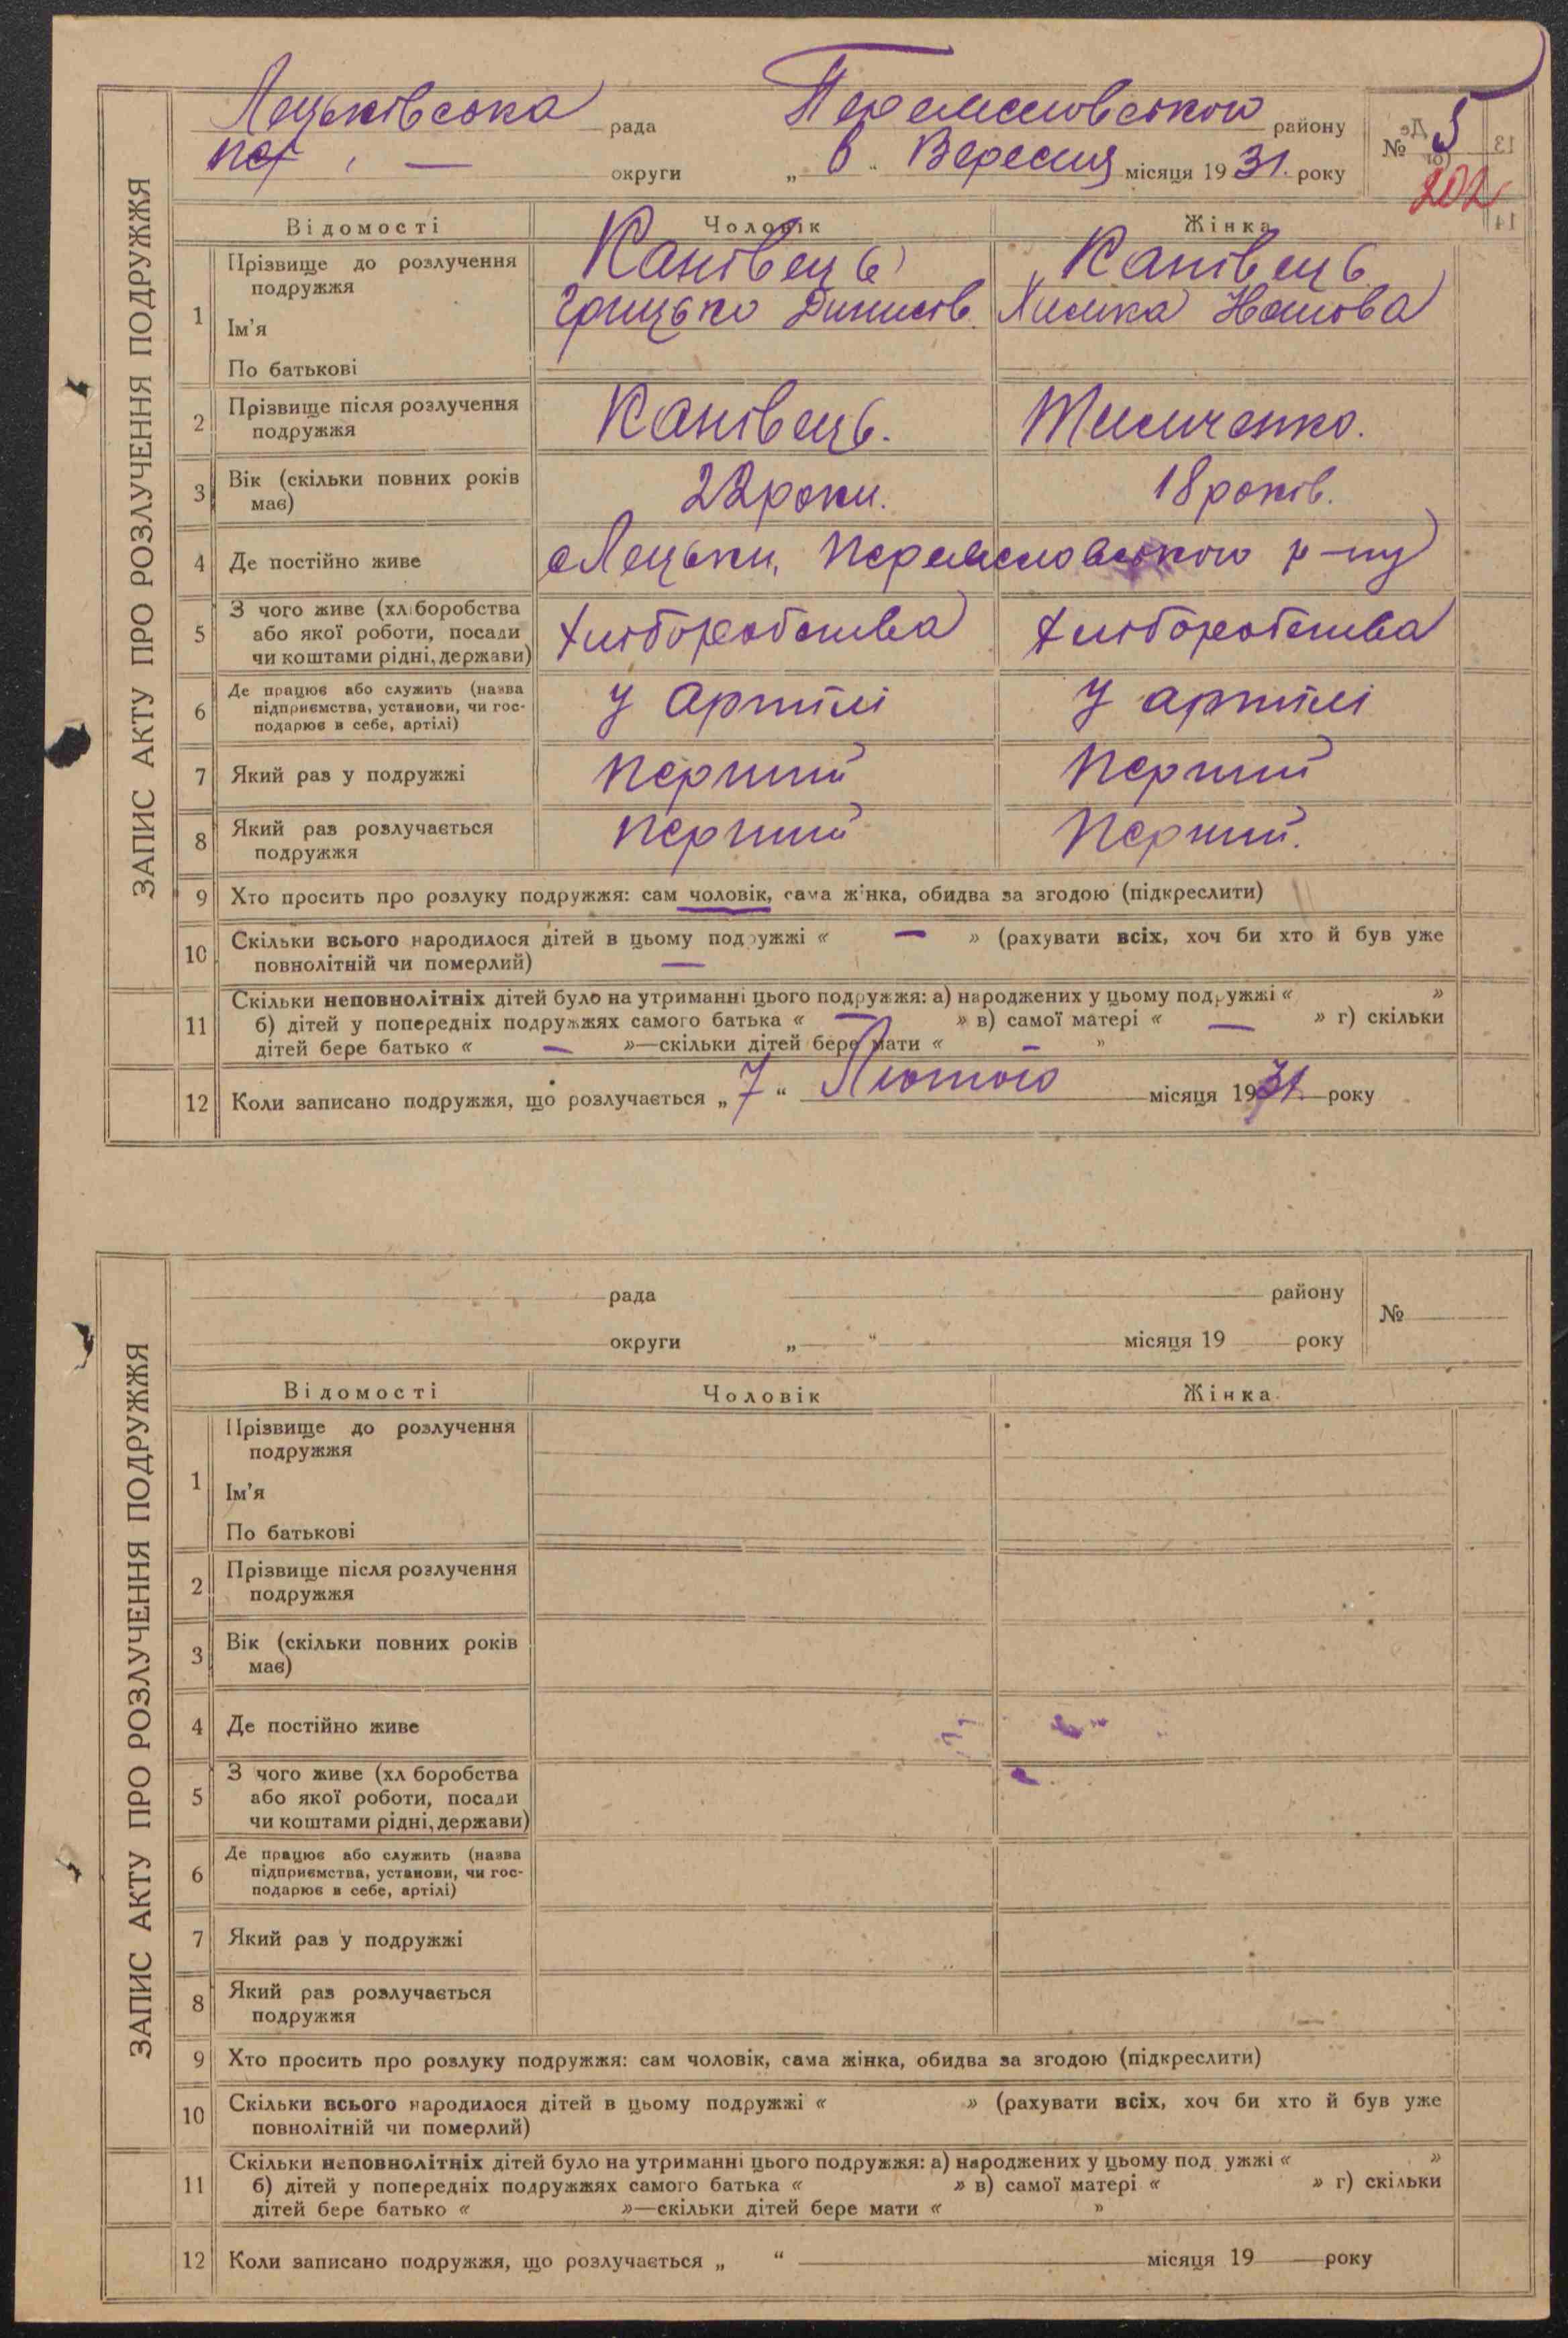 ЗАПИС АКТУ ПРО РОЗЛУЧЕННЯ ПОДРУЖЖЯ
Лецьківська рада Перемисловського району № 5
округи „ 6 “ Вересня місяця 1931. року
202
Відомості Чоловік Жінка
1 Прізвище до розлучення Канівець Канівець
подружжя
Ім’я Грицько Динисів. Химка
По батькові
2 Прізвище після розлучення Канівець. Тимченко.
подружжя
3 Вік (скільки повних років 22 роки. 18 років.
має)
4 Де постійно живе с Лецьки, Перемисловського р-ну
5 З чого живе (хліборобства Хліборобства Хліборобства
або якої роботи, посади
чи коштами рідні, держави)
6 Де працює або служить (назва У артілі У артілі
підприємства, установи, чи гос-
подарює в себе, артілі)
7 Який раз у подружжі Перший Перший
8 Який раз розлучається Перший Перший.
подружжя
9 Хто просить про розлуку подружжя: сам чоловік, сама жінка, обидва за згодою (підкреслити)
10 Скільки всього народилося дітей в цьому подружжі « — » (рахувати всіх, хоч би хто й був уже
повнолітній чи померлий) —
11 Скільки неповнолітніх дітей було на утриманні цього подружжя: а) народжених у цьому подружжі « »
б) дітей у попередніх подружжях самого батька « — » в) самої матері « — » г) скільки
дітей бере батько « — »—скільки дітей бере мати « — »
12 Коли записано подружжя, що розлучається „ 7 “ Лютого місяця 1931. року
ЗАПИС АКТУ ПРО РОЗЛУЧЕННЯ ПОДРУЖЖЯ
рада району №
округи „ “ місяця 19 року
Відомості Чоловік Жінка
1 Прізвище до розлучення
подружжя
Ім’я
По батькові
2 Прізвище після розлучення
подружжя
3 Вік (скільки повних років
має)
4 Де постійно живе
5 З чого живе (хл боробства
або якої роботи, посади
чи коштами рідні, держави)
6 Де працює або служить (назва
підприємства, установи, чи гос-
подарює в себе, артілі)
7 Який раз у подружжі
8 Який раз розлучається
подружжя
9 Хто просить про розлуку подружжя: сам чоловік, сама жінка, обидва за згодою (підкреслити)
10 Скільки всього народилося дітей в цьому подружжі « » (рахувати всіх, хоч би хто й був уже
повнолітній чи померлий)
11 Скільки неповнолітніх дітей було на утриманні цього подружжя: а) народжених у цьому под ужжі « »
б) дітей у попередніх подружжях самого батька « » в) самої матері « » г) скільки
дітей бере батько « »—скільки дітей бере мати « »
12 Коли записано подружжя, що розлучається „ “ місяця 19 року